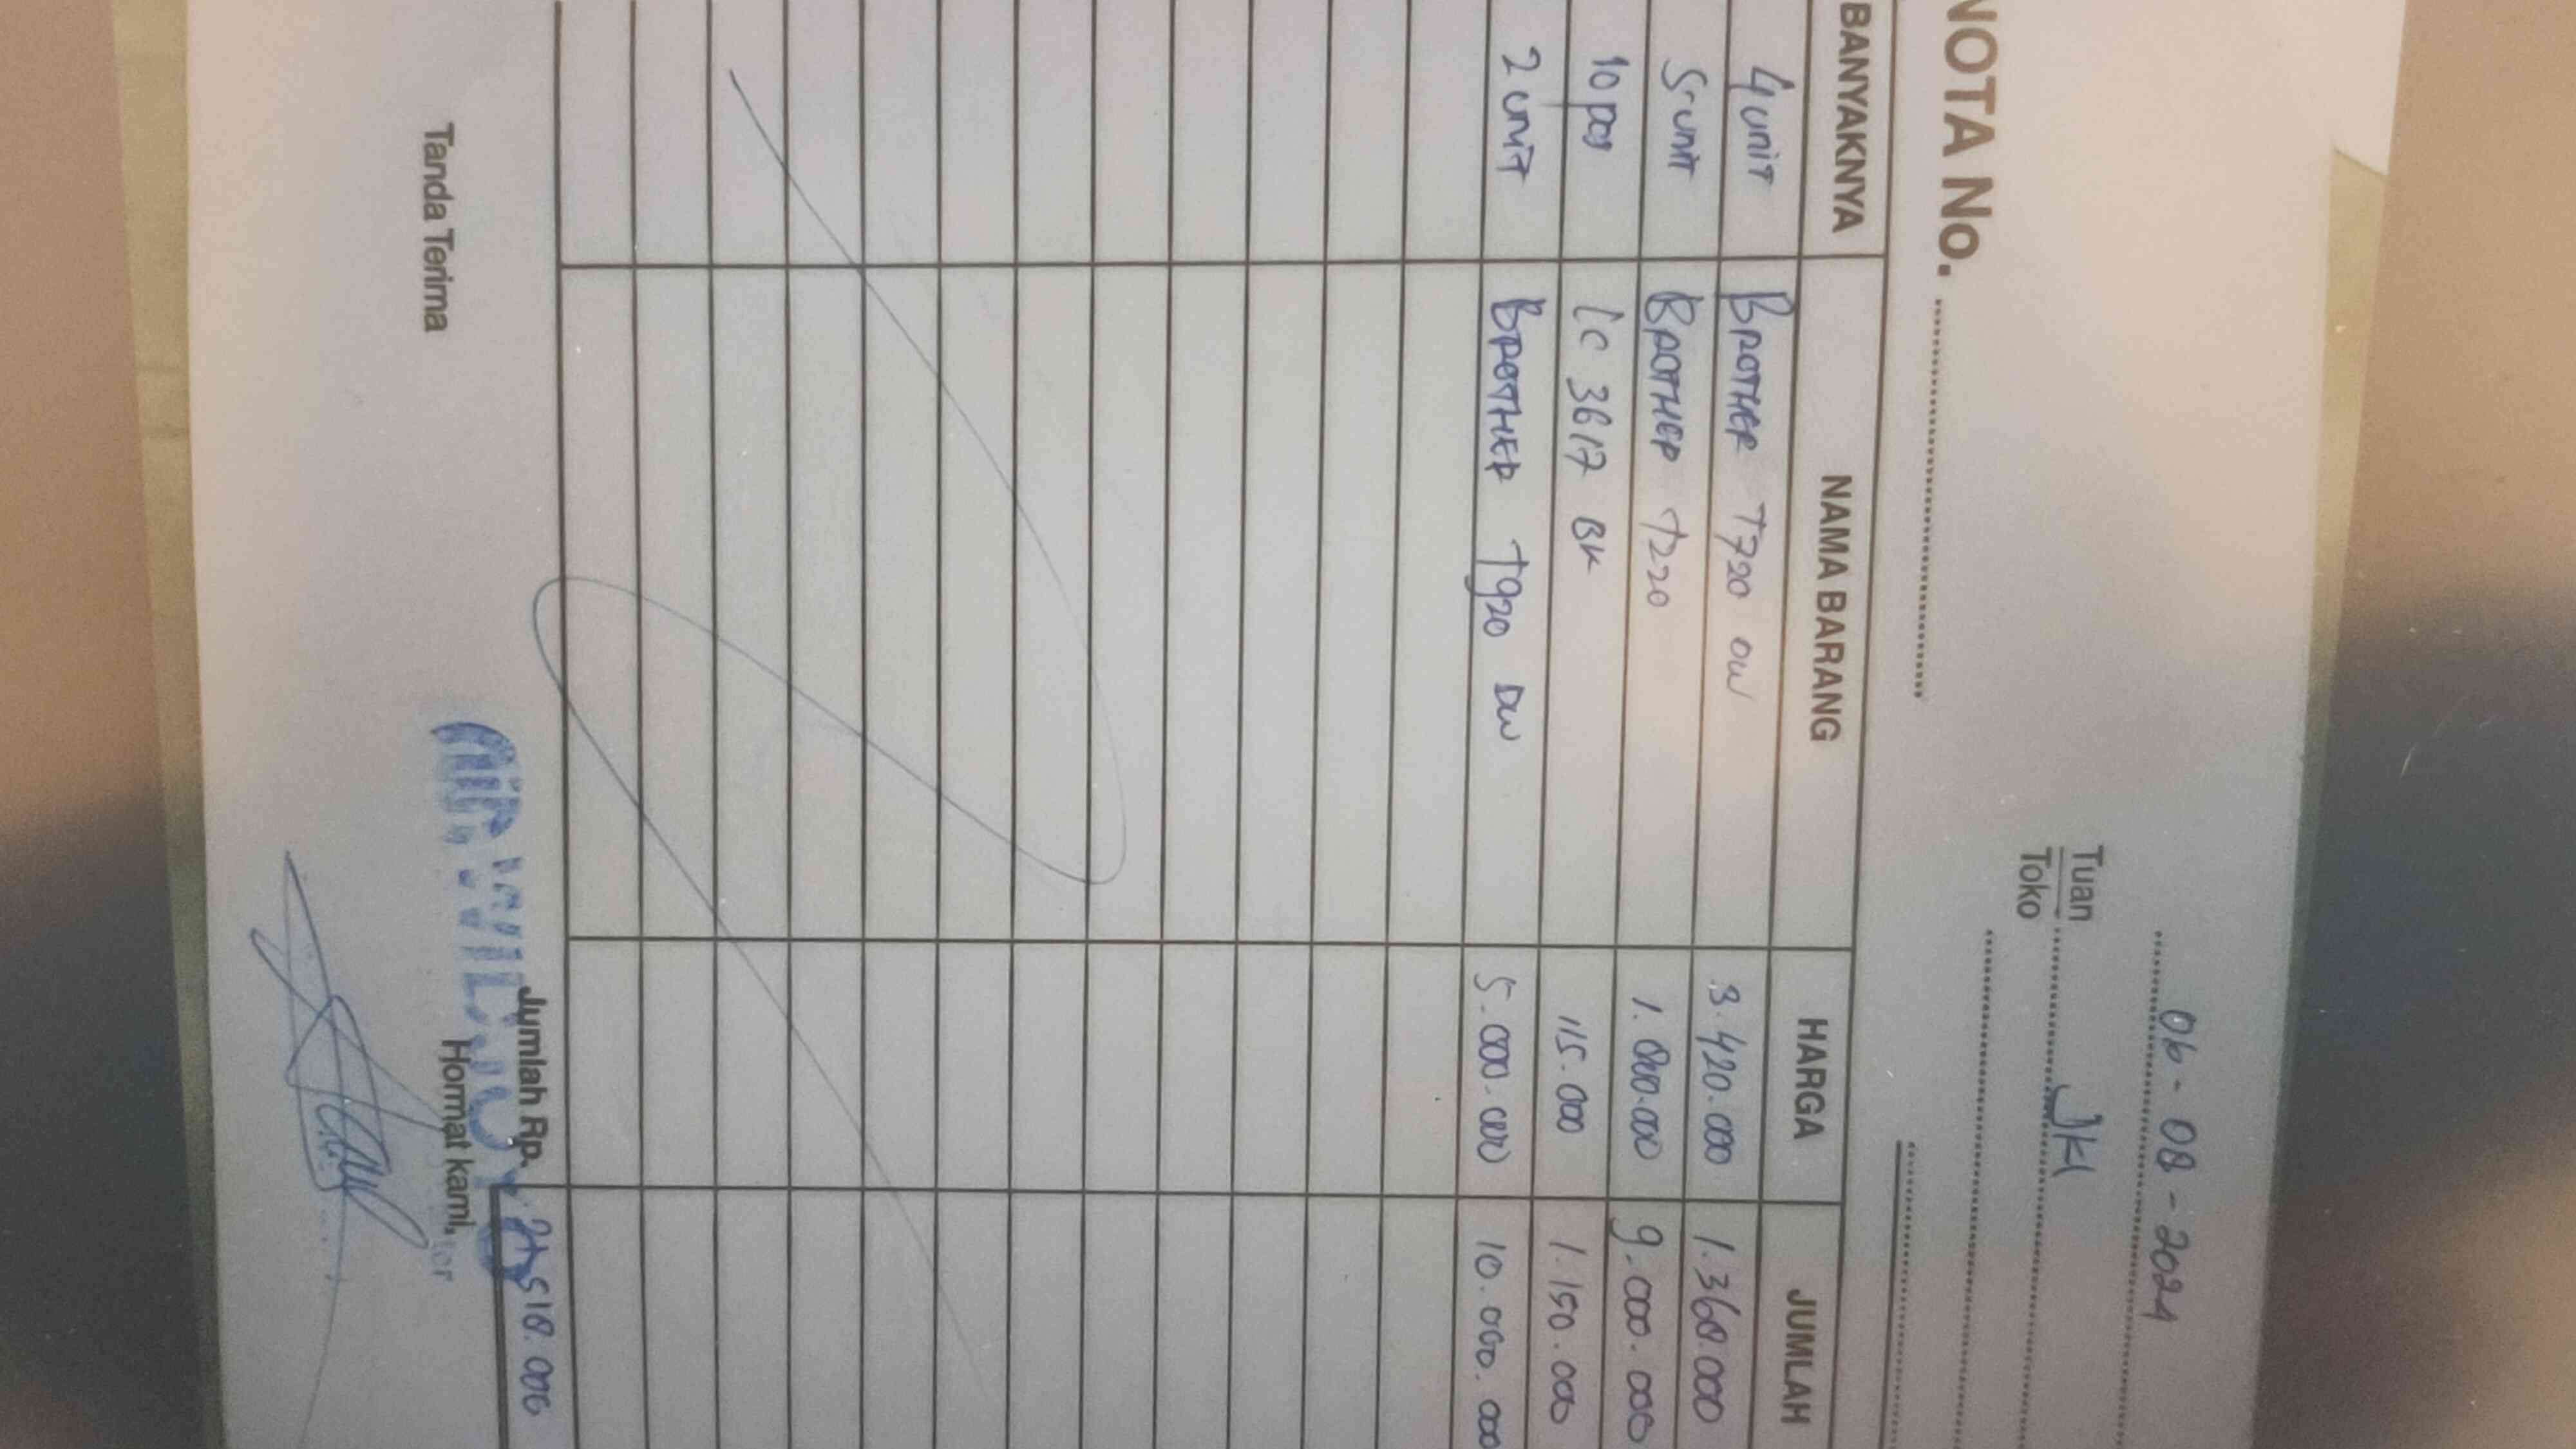 06 - 08 - 2024
Tuan JKl
Toko
NOTA No.
BANYAKNYA NAMA BARANG HARGA JUMLAH
4 unit BROTHER T720 DW 3.420.000 1.368.000
5 unit BROTHER T220 1.800.000 9.000.000
10 pcs LC 3617 BK 115.000 1.150.000
2 unit BROTHER T920 DW 5.000.000 10.000.000
Jumlah Rp. 21.518.000
Tanda Terima Hormat kami,